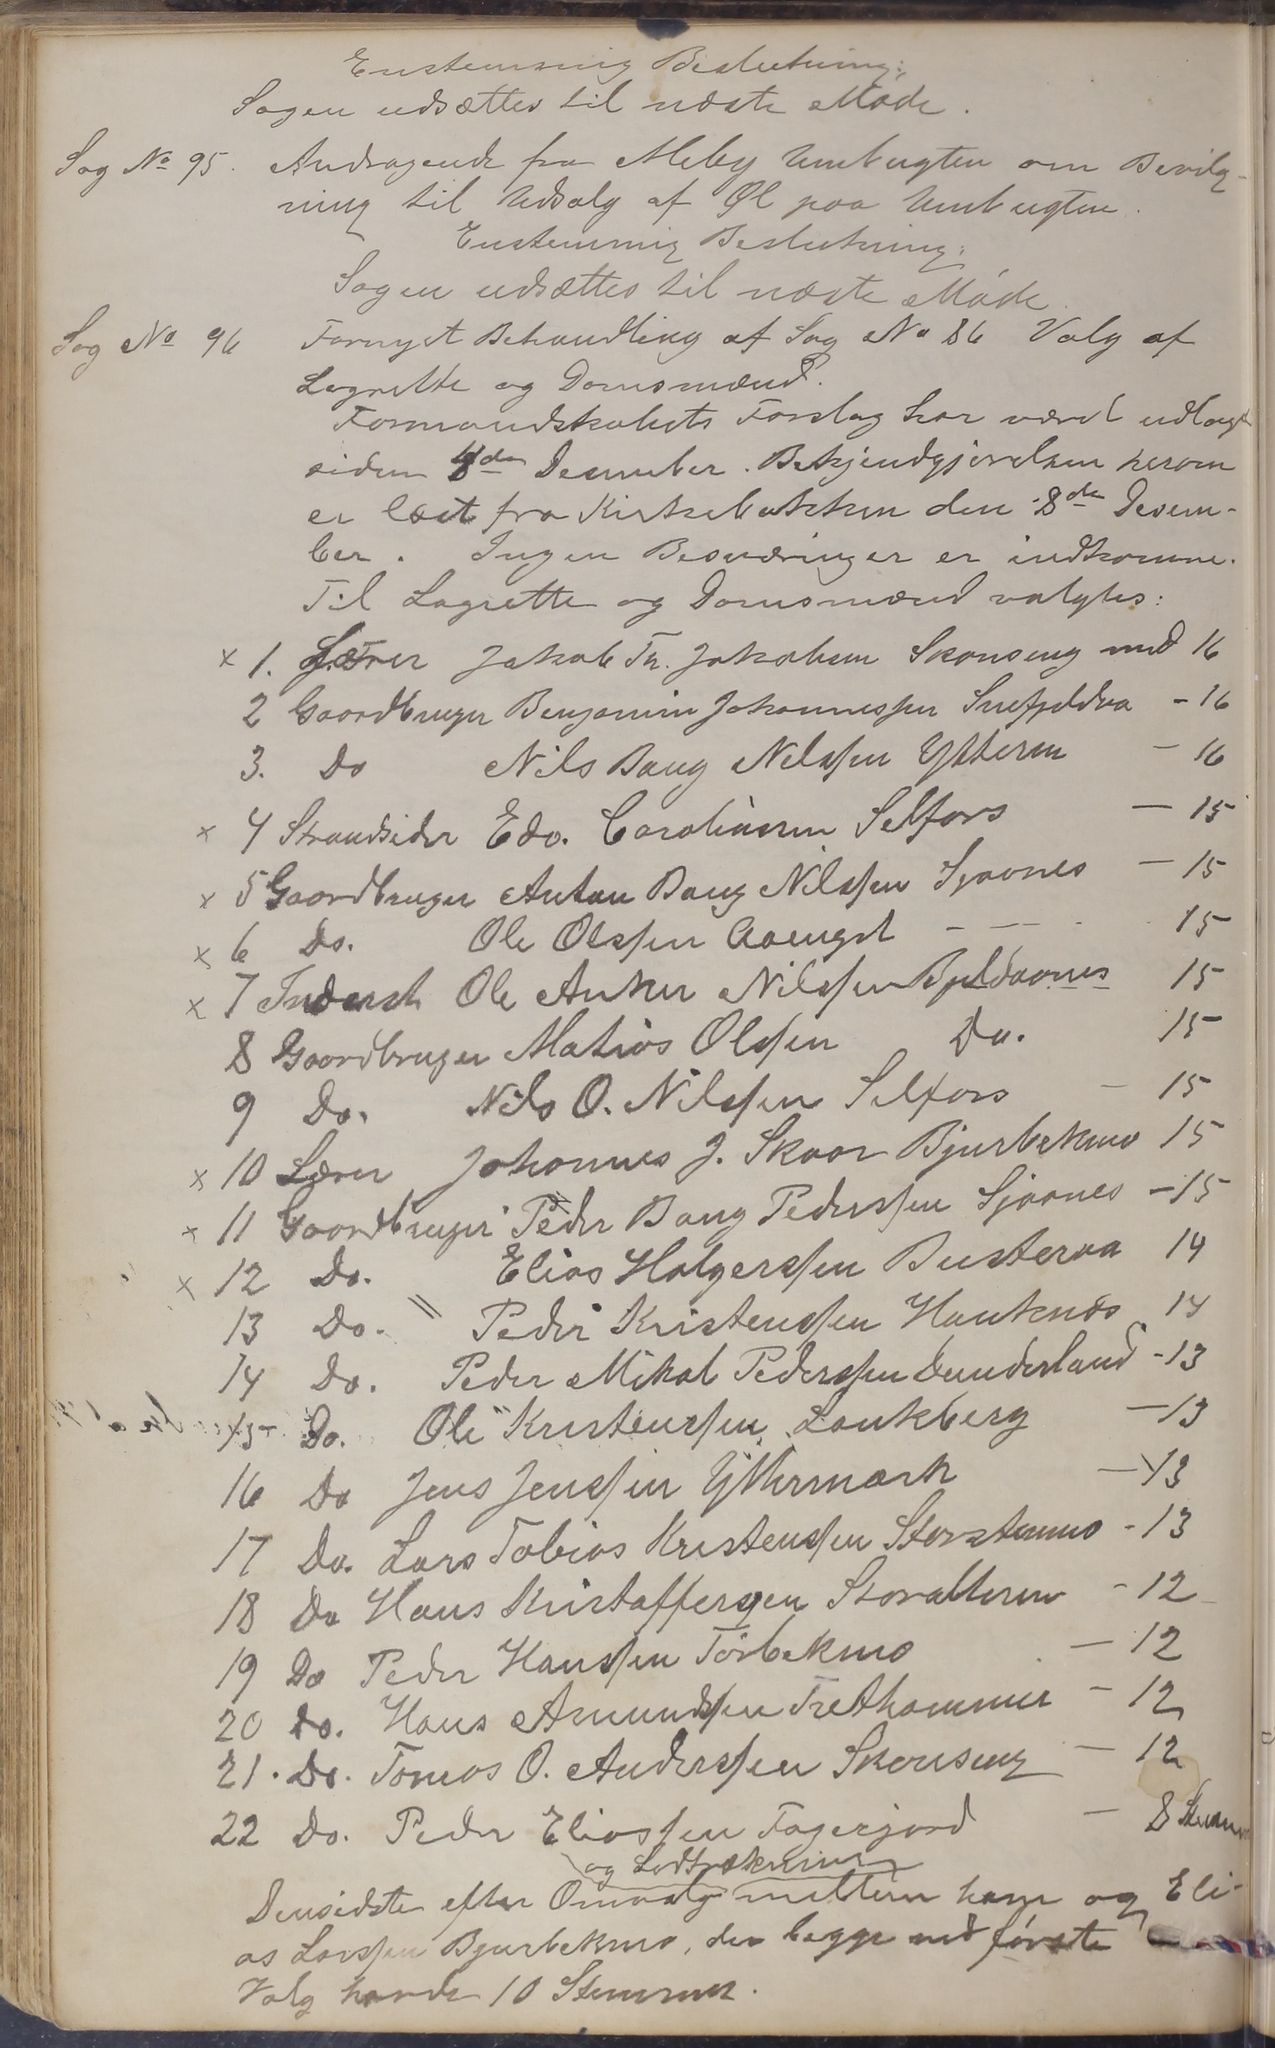 Enstemmig Beslutning:
Sagen udsættes til næste Møde.
Sag No 95. Andragende fra Meby Umbugten om Bevilg-
ning til Udsalg af Øl paa Umbugten.
Enstemmig Beslutning:
Sagen udsættes til næste Møde.
Sag No 96 Fornyet Behandling af Sag No 86 Valg af
Lagrette og Domsmænd.
Formandskabets Forslag har været udlagt
siden 4de Desember. Bekjendtgjørelsen herom
er læst fra Kirkebakken den 8de Desem-
ber. Ingen Besværinger er indkomne.
Til Lagrette og Domsmænd valgtes:
x 1. Lærer Jakob Th. Jakobsen Skonseng med 16
2 Gaardbruger Benjamin Johannessen Snefjeldaa - 16
3. Do Nils Bang Nilssen Ytteren - 16
x 4 Strandsider Edv. Caroliussen Selfors - 15
x 5 Gaardbruger Anton Bang Nilssen Sjaanes - 15
x 6 Do. Ole Olssen Aaenget - - - 15
x 7 Inderst Ole Anker Nilssen Bjeldaanes 15
8 Gaardbruger Matias Olssen Do. 15
9 Do. Nils O. Nilssen Selfors - 15
x 10 Lærer Johannes J. Skaar Bjurbekmo 15
x 11 Gaardbruger Peder Bang Pederssen Sjaanes - 15
x 12 Do. Elias Holgerssen Busteraa 14
13 Do. " Peder Kristenssen Hauknæs 14
14 Do. Peder Mikal Pederssen Dunderland - 13
15 Do. Ole Kristenssen Langberg - 13
16 Do Jens Jenssen Yttermark - 13
17 Do. Lars Tobias Kristenssen Storstenmo - 13
18 Do Hans Kristoffersen Storalteren - 12
19 Do Peder Hanssen Tørbekmo - 12
20 Do. Hans Amundssen Trethammer - 12
21. Do. Tomas O. Anderssen Skonseng - 12
22 Do. Peder Eliassen Fagerjord - 8 Stemmer
og Lodtrækning
Densidste efter Omvalg mellem ham og Eli-
as Larssen Bjurbekmo, der begge ved første
Valg havde 10 Stemmer.